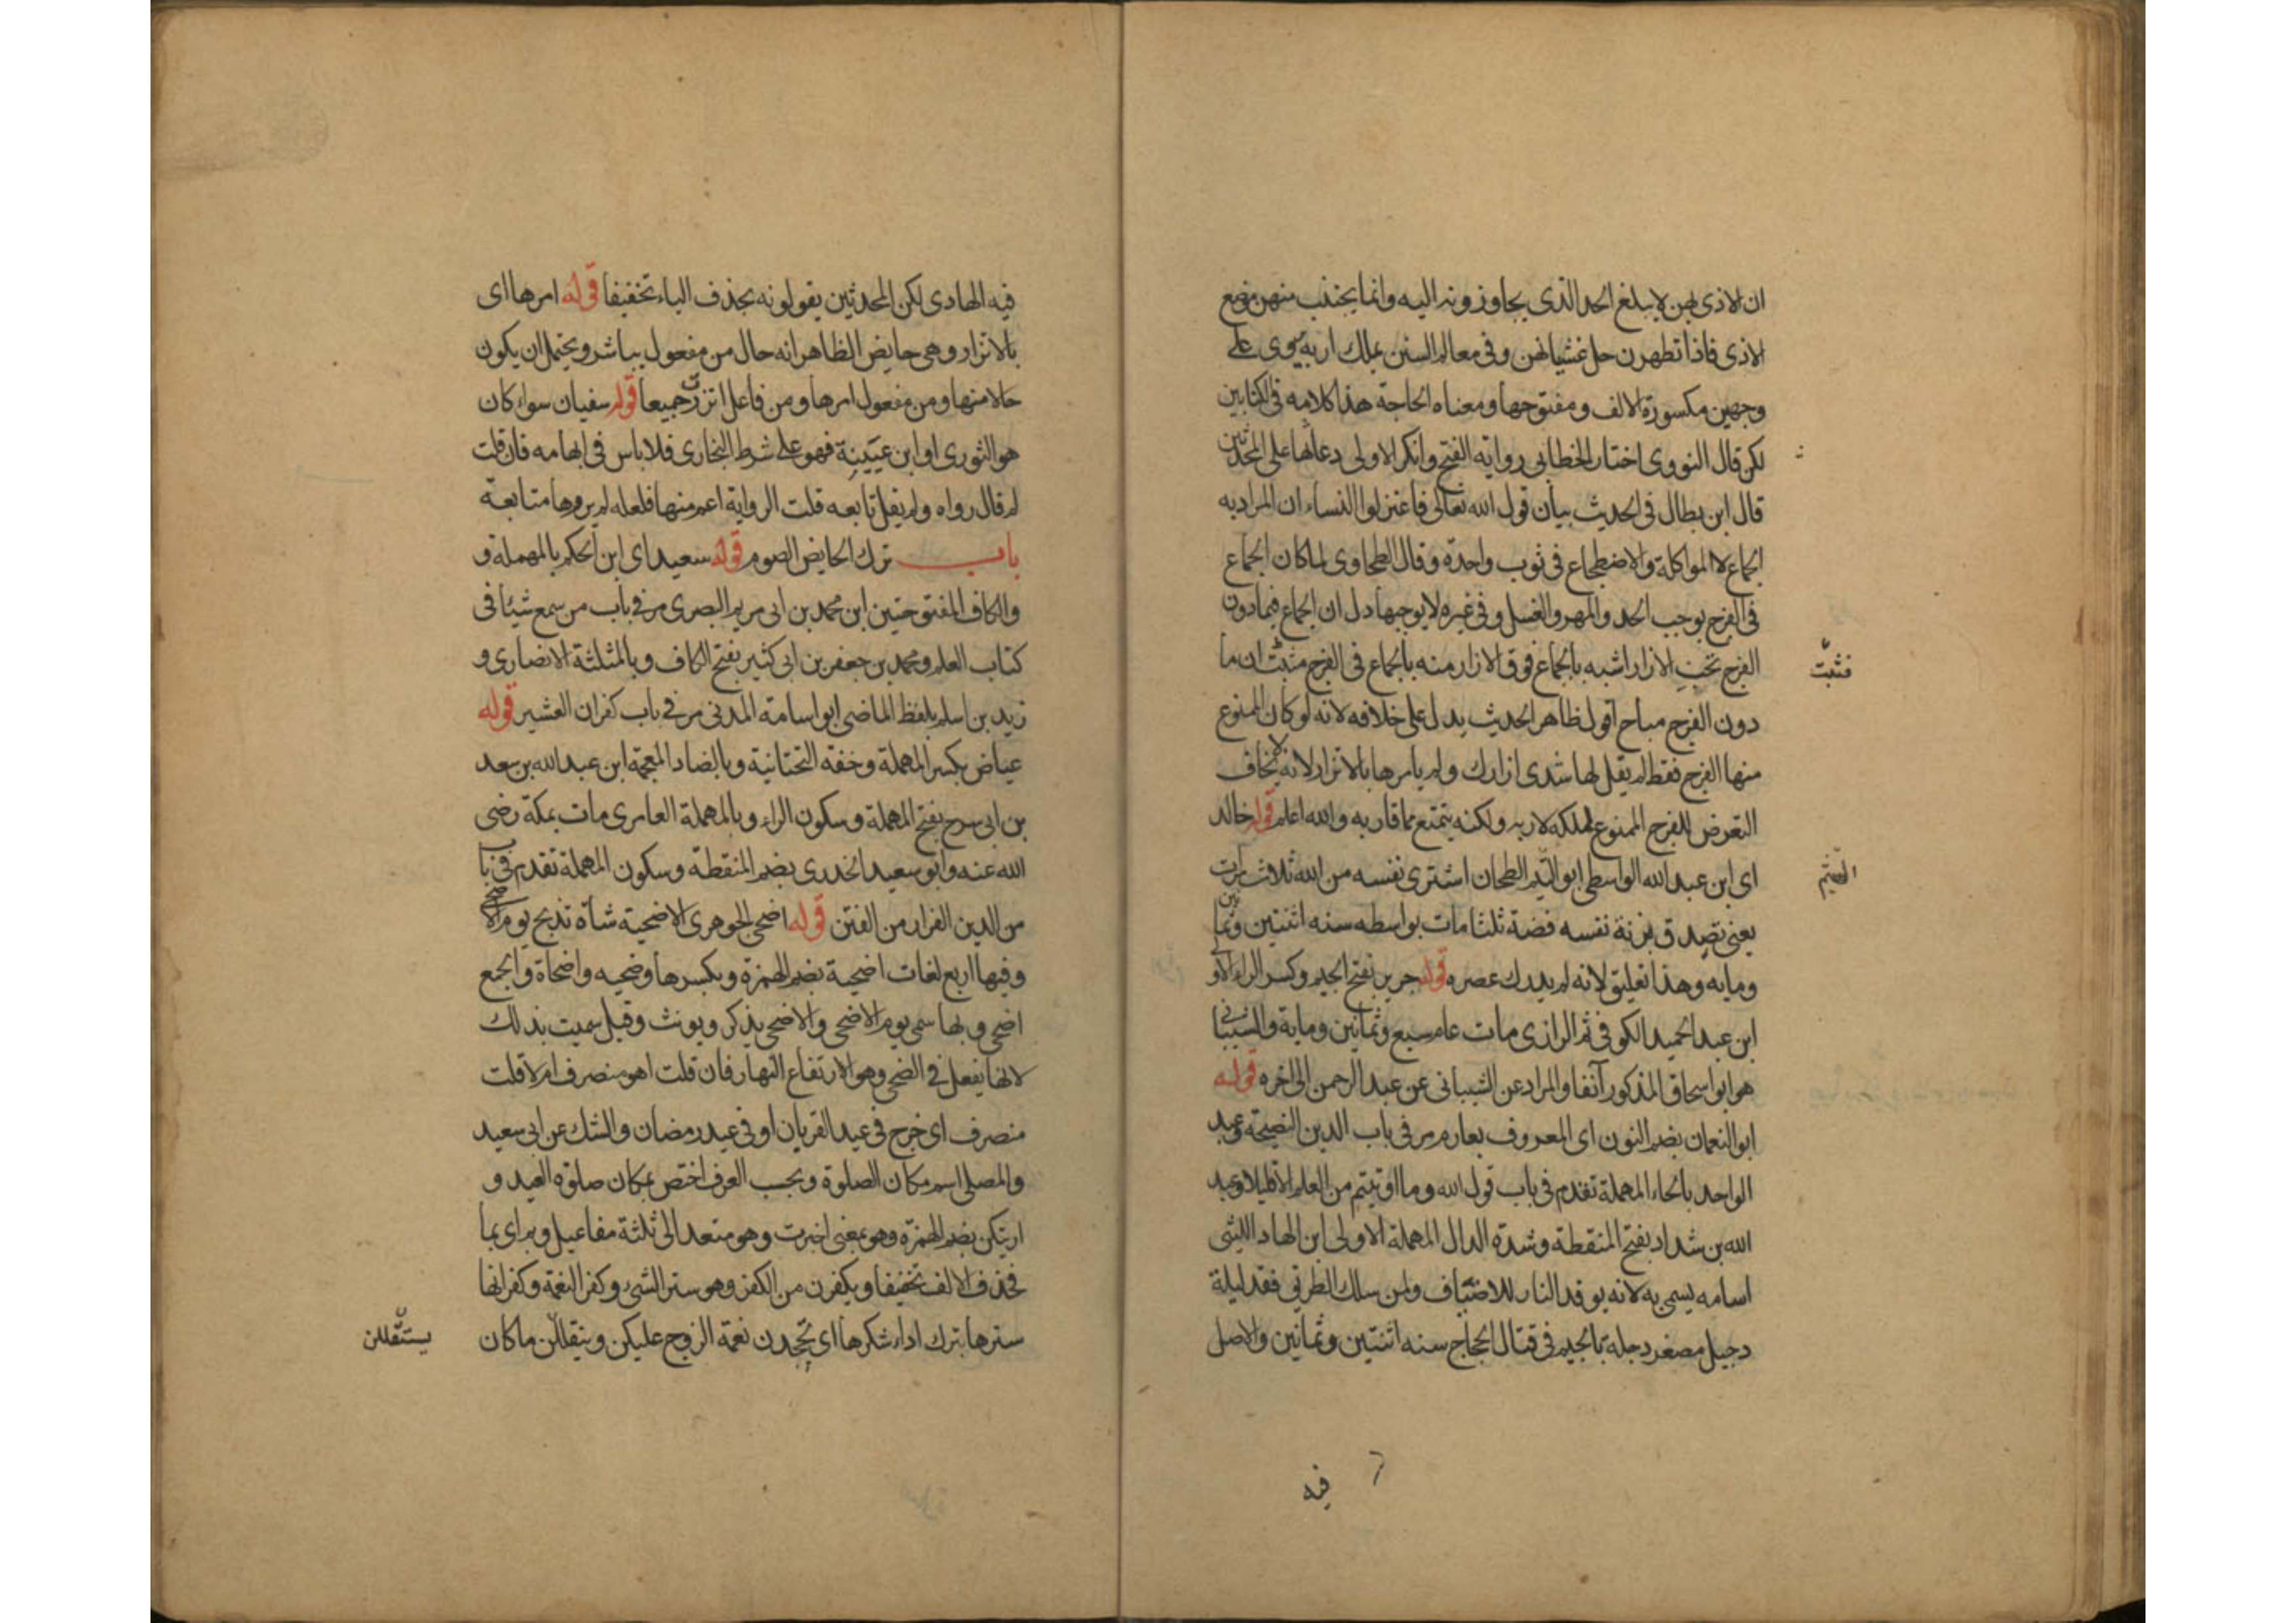 ان الاذى بهن لا يبلغ الحد الذى يجاوزونه اليه وانما يجتنب منهن موضع
الاذى فاذا تطهرن حل غشيانهن وفى معالم السنن يملك اربه يروى على
وجهين مكسورة الالف ومفتوحها ومعناه الحاجة هذا كلامه فى الكتابين
لكن قال النووى اختار الخطابى رواية الفتح وانكر الاولى وعابها على المحدثين
قال ابن بطال فى الحديث بيان قول الله تعالى فاعتزلوا النساء ان المراد به
الجماع لا المواكلة والاضطجاع فى ثوب واحدة وقال الطحاوى لما كان الجماع
فى الفرج يوجب الحد والمهر والغسل وفى غيره لا يوجبها دل ان الجماع فيما دون
الفرج تحت الازار اشبه بالجماع فوق الازار منه بالجماع فى الفرج فثبت ان ما
فثبت
دون الفرج مباح اقول ظاهر الحديث يدل على خلافه لانه لو كان الممنوع
منها الفرج فقط لم يقل لها شدى ازارك ولم يامرها بالاتزار لانه لا يخاف
التعرض للفرج الممنوع لملكه لاربه ولكنه يتمتع بما قاربه والله اعلم قوله خالد
اى ابن عبد الله الواسطى ابو الهيثم الطحان اشترى نفسه من الله ثلاث مرات
الهيثم
يعنى تصدق بزنة نفسه فضة ثلثا مات بواسطه سنه اثنتين وثمانين
ومايه وهذا تعليق لانه لم يدرك عصره قوله جرير بفتح الجيم وكسر الراء الاولى
ابن عبد الحميد الكوفى ثم الرازى مات عام سبع وثمانين وماية والشيبانى
هو ابو اسحاق المذكور آنفا والمراد عن الشيبانى عن عبد الرحمن الى اخره قوله
ابو النعمان بضم النون اى المعروف بعارم مر فى باب الدين النصيحة وعبد
الواحد بالحاء المهملة تقدم فى باب قول الله وما اوتيتم من العلم الا قليلا وعبد
الله بن شداد بفتح المنقطة وشدة الدال المهملة الاولى ابن الهاد الليثى
اسامه يسمى به لانه يوقد النار للاضياف ولمن سلك الطريق فقد ليلة
دجيل مصغر دجلة بالجيم فى قتال الحجاج سنه اثنتين وثمانين والاصل
فيه
فيه الهادى لكن المحدثين يقولونه بحذف الياء تخفيفا قوله امرها اى
بالاتزار وهى حايض الظاهر انه حال من مفعول يباشر ويحتمل ان يكون
حالا منها ومن مفعول امرها ومن فاعل اتزرت جميعا قوله سفيان سواء كان
هو الثورى او ابن عيينة فهو على شرط البخارى فلا باس فى ابهامه فان قلت
لم قال رواه ولم يقل تابعه قلت الرواية اعم منها فلعله لم يروها متابعة
باب ترك الحايض الصوم قوله سعيد اى ابن الحكم بالمهملة و
والكاف المفتوحتين ابن محمد بن ابى مريم البصرى مر فى باب من سمع شيئا فى
كتاب العلم ومحمد بن جعفر بن ابى كثير بفتح الكاف وبالمثلثة الانصارى و
زيد بن اسلم بلفظ الماضى ابو اسامة المدنى مر فى باب كفران العشير قوله
عياض بكسر المهملة وخفة التحتانية وبالضاد المعجمة ابن عبد الله بن سعد
بن ابى سرح بفتح المهملة وسكون الراء وبالمهملة العامرى مات بمكة رضى
الله عنه وابو سعيد الخدرى بضم المنقطة وسكون المهملة تقدم فى باب
من الدين الفرار من الفتن قوله اضحى الجوهرى الاضحية شاة تذبح يوم الاضحى
وفيها اربع لغات اضحية بضم الهمزة وبكسرها وضحيه واضحاة والجمع
اضحى وبها سمى يوم الاضحى والاضحى يذكر ويونث وقيل سميت بذلك
لانها يفعل فى الضحى وهو الارتفاع النهار فان قلت اهو منصرف ام لا قلت
منصرف اى خرج فى عيد القربان او فى عيد رمضان والشك عن ابى سعيد
والمصلى اسم مكان الصلوة وبحسب العرف اختص بمكان صلوة العيد و
اريتكن بضم الهمزة وهو بمعنى اخبرت وهو متعد الى ثلثة مفاعيل وبم اى بما
فحذف الالف تخفيفا ويكفرن من الكفر وهو ستر الشىء وكفر النعمة وكفرانها
سترها بترك اداء شكرها اى تجحدن نعمة الزوج عليكن وينقللن ماكان
يستقللن